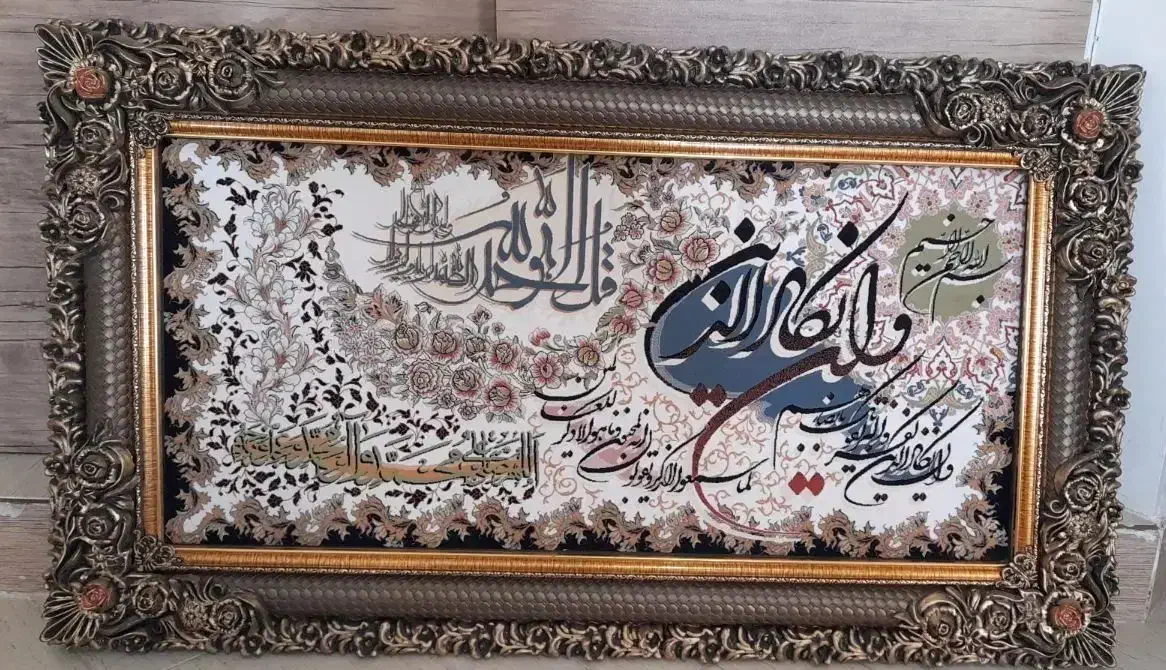 بسم الله الرحمن الرحیم
وان یکاد الذین
وان یکاد الذین کفروا لیزلقونک بابصارهم
لما سمعوا الذکر و یقولون
انه لمجنون و ما هو الا ذکر
للعالمین
قل هو الله احد
الله الصمد لم یلد و لم یولد
اللهم صل علی محمد و آل محمد و عجل فرجهم